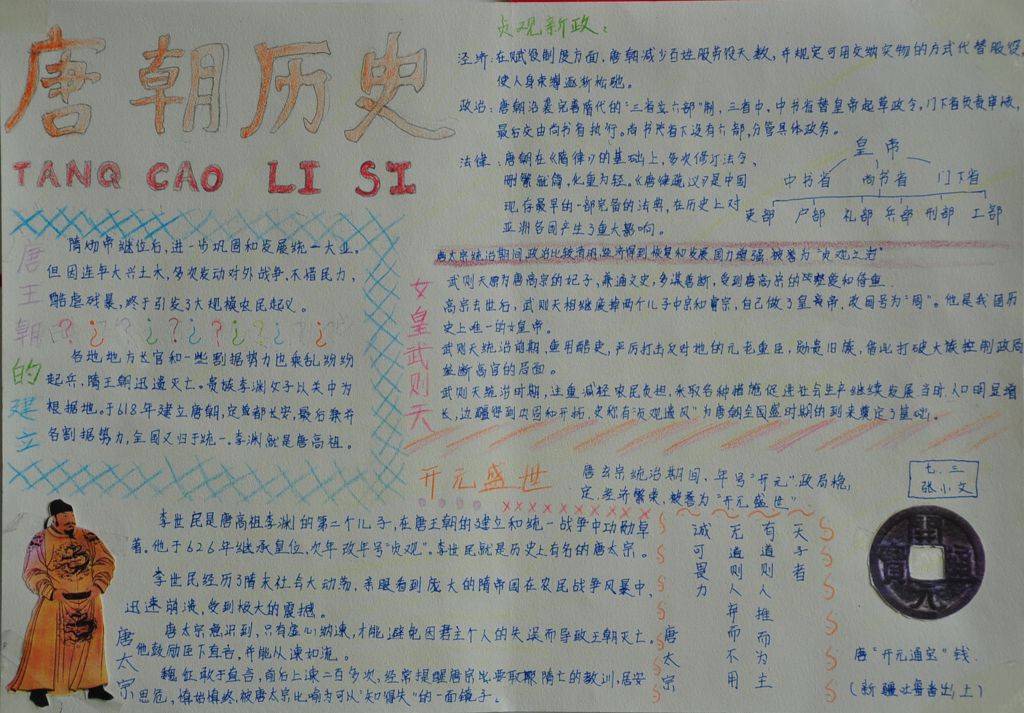 唐朝历史
TANQ CAO LI SI
唐王朝的建立
隋炀帝继位后,进一步巩固和发展统一大业。
但因连年大兴土木,多次发动对外战争,不惜民力,
酷虐残暴,终于引发了大规模农民起义。
各地地方长官和一些割据势力也乘乱纷纷
起兵,隋王朝迅速灭亡。贵族李渊父子以关中为
根据地。于618年建立唐朝,定都长安,最后兼并
各割据势力,全国又归于统一。李渊就是唐高祖。
贞观新政:
经济:在赋役制度方面,唐朝减少百姓服劳役天数,并规定可用交纳实物的方式代替服役
使人身束缚逐渐松弛。
政治:唐朝沿袭完善隋代的“三省六部”制,三省中,中书省替皇帝起草政令,门下省负责审核,
最后交由尚书省执行。尚书省下设有六部,分管具体政务。
法律:唐朝在《隋律》的基础上,多次修订法令、
删繁就简,化重为轻。《唐律疏议》是中国
现存最早的一部完备的法典,在历史上对
亚洲各国产生了重大影响。
皇帝
中书省 尚书省 门下省
吏部 户部 礼部 兵部 刑部 工部
唐太宗统治期间,政治比较清明,经济得到恢复和发展,国力增强,被誉为“贞观之治”
女皇武则天
武则天原为唐高宗的妃子,兼通文史,多谋善断,受到唐高宗的宠爱和倚重。
高宗去世后,武则天相继废掉两个儿子中宗和睿宗,自己做了皇帝,改国号为“周”。他是我国历
史上唯一的女皇帝。
武则天统治前期,重用酷吏,严厉打击反对她的元老重臣,勋贵旧族,借此打破大族控制政局
垄断高官的局面。
武则天统治时期,注重减轻农民负担,采取各种措施促进社会生产继续发展当时人口明显增
长,边疆得到巩固和开拓,史称有“贞观遗风”为唐朝全国盛时期的到来奠定了基础。
开元盛世
唐玄宗统治期间、年号“开元”,政局稳,
定,经济繁荣,被誉为“开元盛世”
七.三
张小文
李世民是唐高祖李渊的第二个儿子,在唐王朝的建立和统一战争中功勋卓
著。他于626年继承皇位,次年改年号“贞观”。李世民就是历史上有名的唐太宗。
李世民经历了隋末社会大动荡,亲眼看到庞大的隋帝国在农民战争风暴中,
迅速崩溃,受到极大的震撼。
唐太宗意识到,只有虚心纳谏,才能避免因君主个人的失误而导致王朝灭亡。
他鼓励臣下直言,并能从谏如流。
魏征敢于直言,前后上谏二百多次,经常提醒唐宗要吸取隋亡的教训,居安
思危,慎始慎终,被唐太宗比喻为可以“知得失”的一面镜子。
唐太宗
天子者
有道则人推而为主
无道则人弃而不用
诚可畏力
唐太宗
開元通寳
唐“开元通宝”钱
(新疆吐鲁番出土)